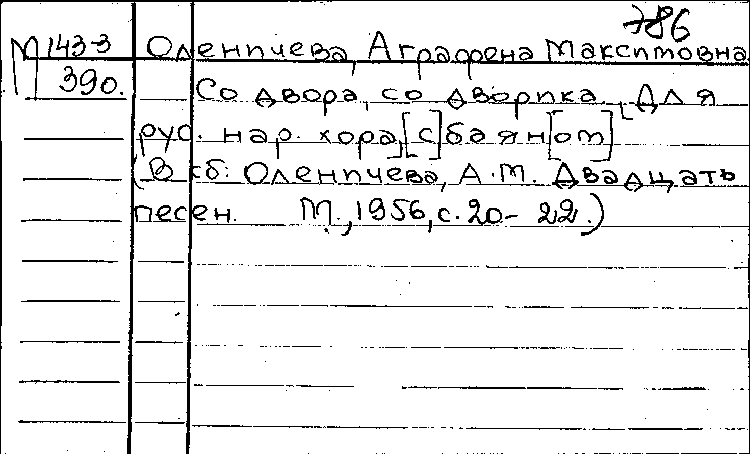 786
М 143-3 Оленичева, Аграфена Максимовна
390.
Со двора, со дворика. [Для
рус. нар. хора] [с] баян[ом]
(В сб: Оленичева, А.М. Двадцать
песен. М., 1956, с. 20-22.)